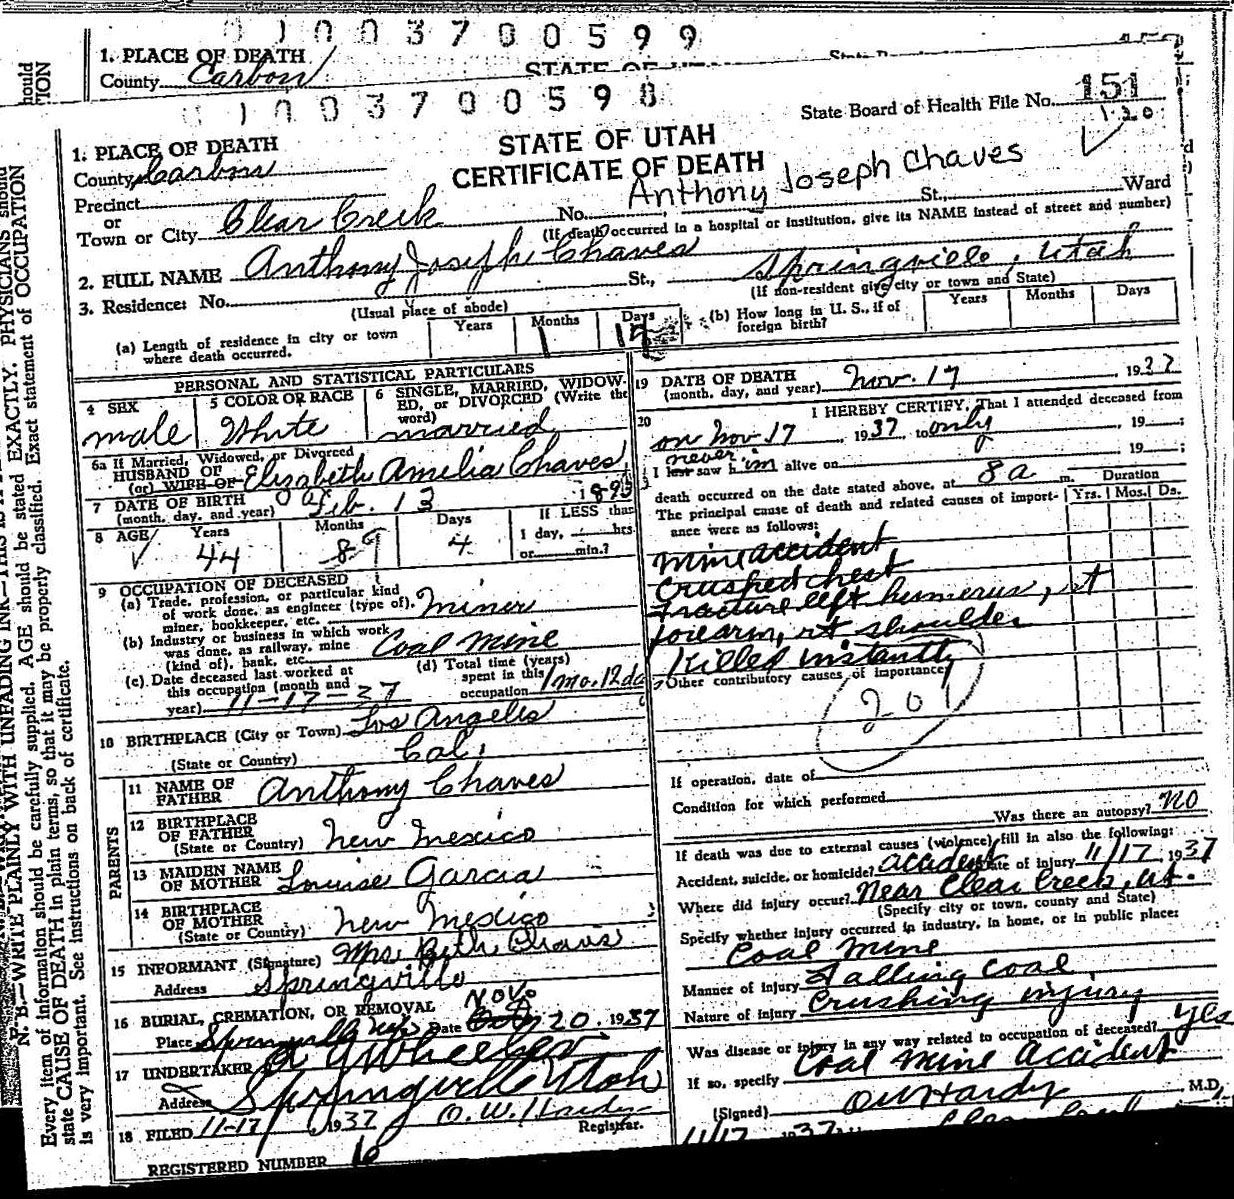 0 1 0 0 3 7 0 0 5 9 9
1. PLACE OF DEATH
County Carbon
STATE OF
0 1 0 0 3 7 0 0 5 9 8
State Board of Health File No. 151
120
1. PLACE OF DEATH
STATE OF UTAH
County Carbon
CERTIFICATE OF DEATH
Precinct
Anthony Joseph Chaves
or
Town or City Clear Creek No. St., Ward
(If death occurred in a hospital or institution, give its NAME instead of street and number)
2. FULL NAME Anthony Joseph Chaves
3. Residence: No. St., Springville, Utah
(Usual place of abode) (If non-resident give city or town and State)
(a) Length of residence in city or town where death occurred. Years Months 1 Days 17
(b) How long in U. S., if of foreign birth? Years Months Days
PERSONAL AND STATISTICAL PARTICULARS
4 SEX male
5 COLOR OR RACE White
6 SINGLE, MARRIED, WIDOWED, or DIVORCED (Write the word) married
6a If Married, Widowed, or Divorced
HUSBAND OF
(or) WIFE OF Elizabeth Amelia Chaves
7 DATE OF BIRTH
(month, day, and year) Feb. 13 1893
8 AGE Years 44 Months 8 9 Days 4 If LESS than 1 day, hrs. or min.?
9 OCCUPATION OF DECEASED
(a) Trade, profession, or particular kind of work done, as engineer (type of), miner, bookkeeper, etc. Miner
(b) Industry or business in which work was done, as railway, mine (kind of), bank, etc. Coal Mine
(c) Date deceased last worked at this occupation (month and year) 11-17-37
(d) Total time (years) spent in this occupation 1 mo. 12 da
10 BIRTHPLACE (City or Town) Los Angeles
(State or Country) Cal.
PARENTS
11 NAME OF FATHER Anthony Chaves
12 BIRTHPLACE OF FATHER (State or Country) New Mexico
13 MAIDEN NAME OF MOTHER Louise Garcia
14 BIRTHPLACE OF MOTHER (State or Country) New Mexico
15 INFORMANT (Signature) Mrs Beth Chavis
Address Springville
16 BURIAL, CREMATION, OR REMOVAL
Place Springville Date Nov. 20. 1937
17 UNDERTAKER A Y Wheeler
Address Springville Utah
18 FILED 11-17, 1937 O. W. Hardy
Registrar.
REGISTERED NUMBER 16
19 DATE OF DEATH
(month, day, and year) Nov. 17 1937
20 I HEREBY CERTIFY, That I attended deceased from
on Nov 17 1937 to only 19 ;
never
I last saw him alive on 19 ;
death occurred on the date stated above, at 8 a m.
The principal cause of death and related causes of importance were as follows:
Duration
Yrs. Mos. Ds.
Mine accident
Crushed chest
Fracture left humerus, rt
forearm, rt shoulder
Killed instantly
Other contributory causes of importance:
201
If operation, date of
Condition for which performed
Was there an autopsy? No
If death was due to external causes (violence) fill in also the following:
Accident, suicide, or homicide? accident Date of injury 11/17, 1937
Where did injury occur? Near Clear Creek, Ut.
(Specify city or town, county and State)
Specify whether injury occurred in industry, in home, or in public place:
Coal Mine
Manner of injury Falling coal,
Nature of injury Crushing injury
Was disease or injury in any way related to occupation of deceased? yes
If so, specify Coal Mine Accident
(Signed) O W Hardy M.D.
11/17 1937
N. B.—WRITE PLAINLY WITH UNFADING INK—THIS IS A
Every item of information should be carefully supplied. AGE should be stated EXACTLY. PHYSICIANS should
state CAUSE OF DEATH in plain terms, so that it may be properly classified. Exact statement of OCCUPATION
is very important. See instructions on back of certificate.